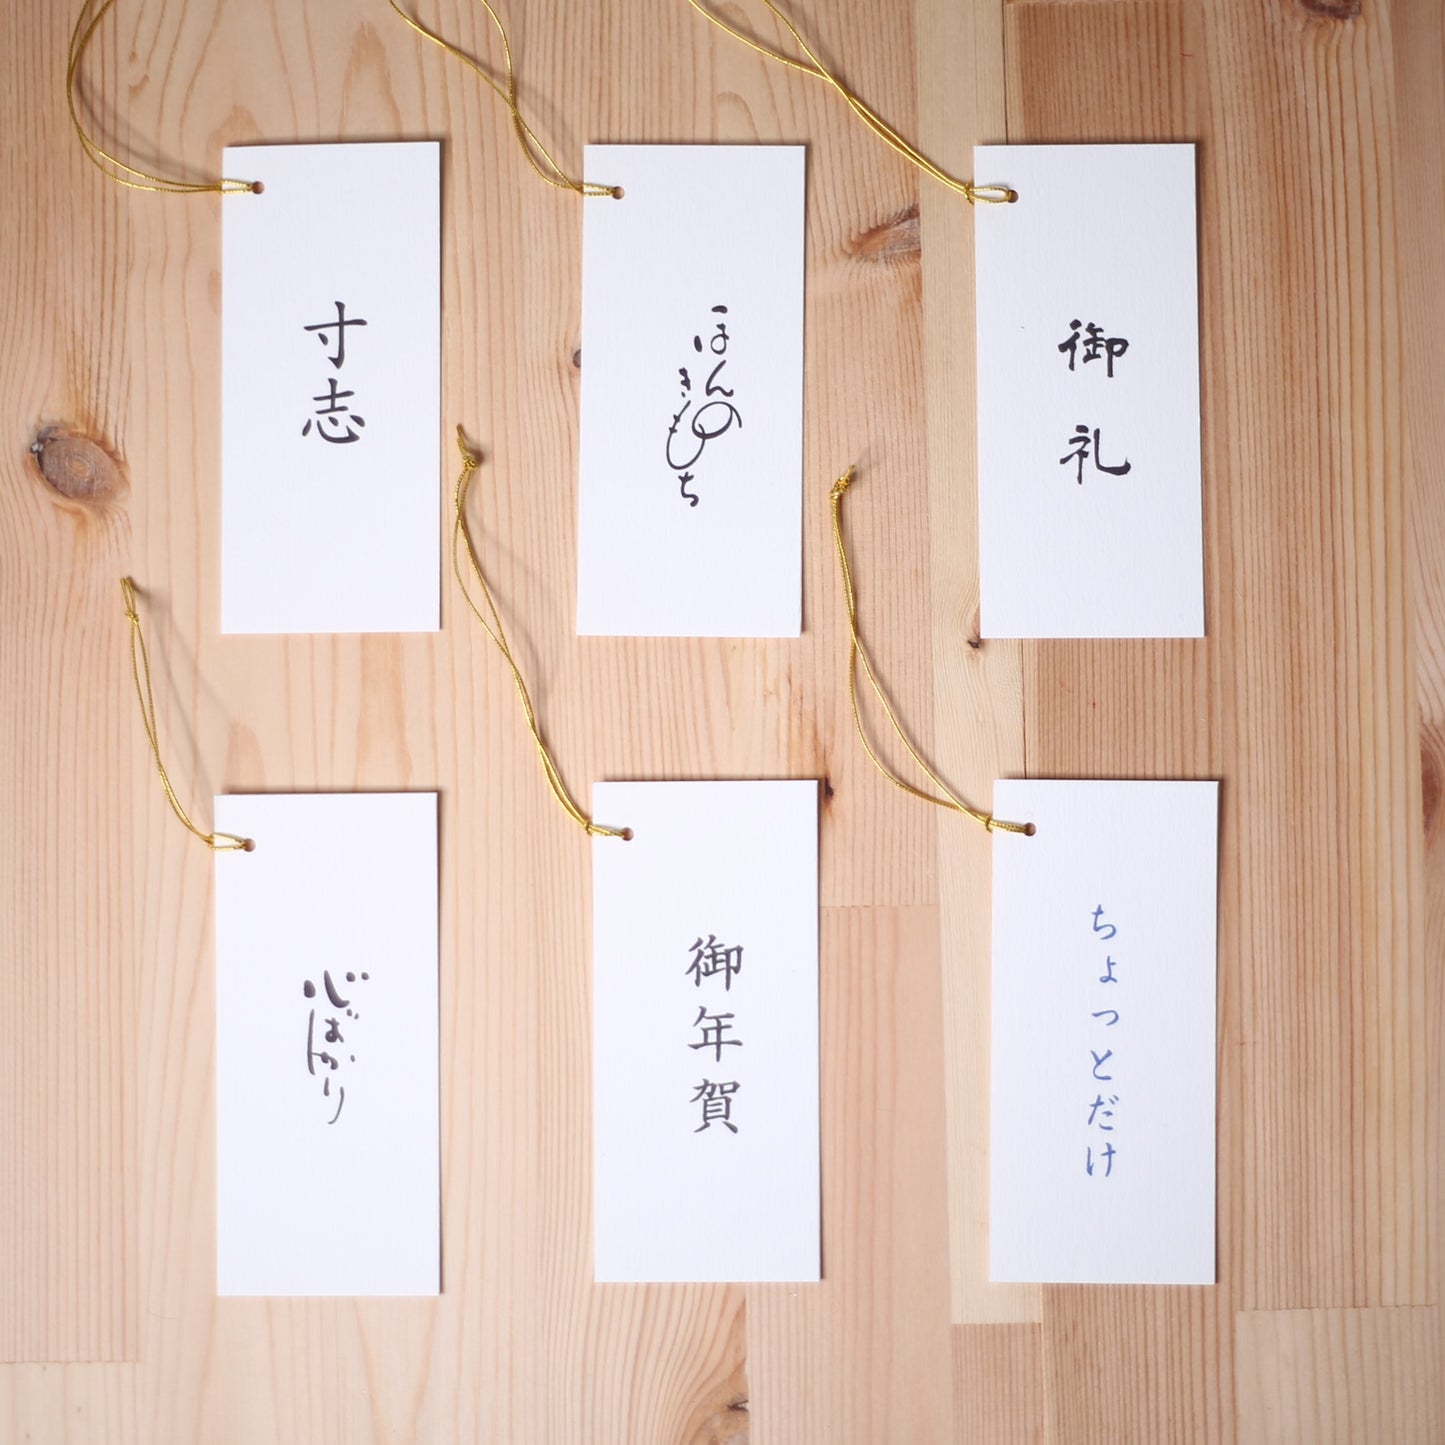 寸志
ほんの
きもち
御礼
心ばかり
御年賀
ちょっとだけ